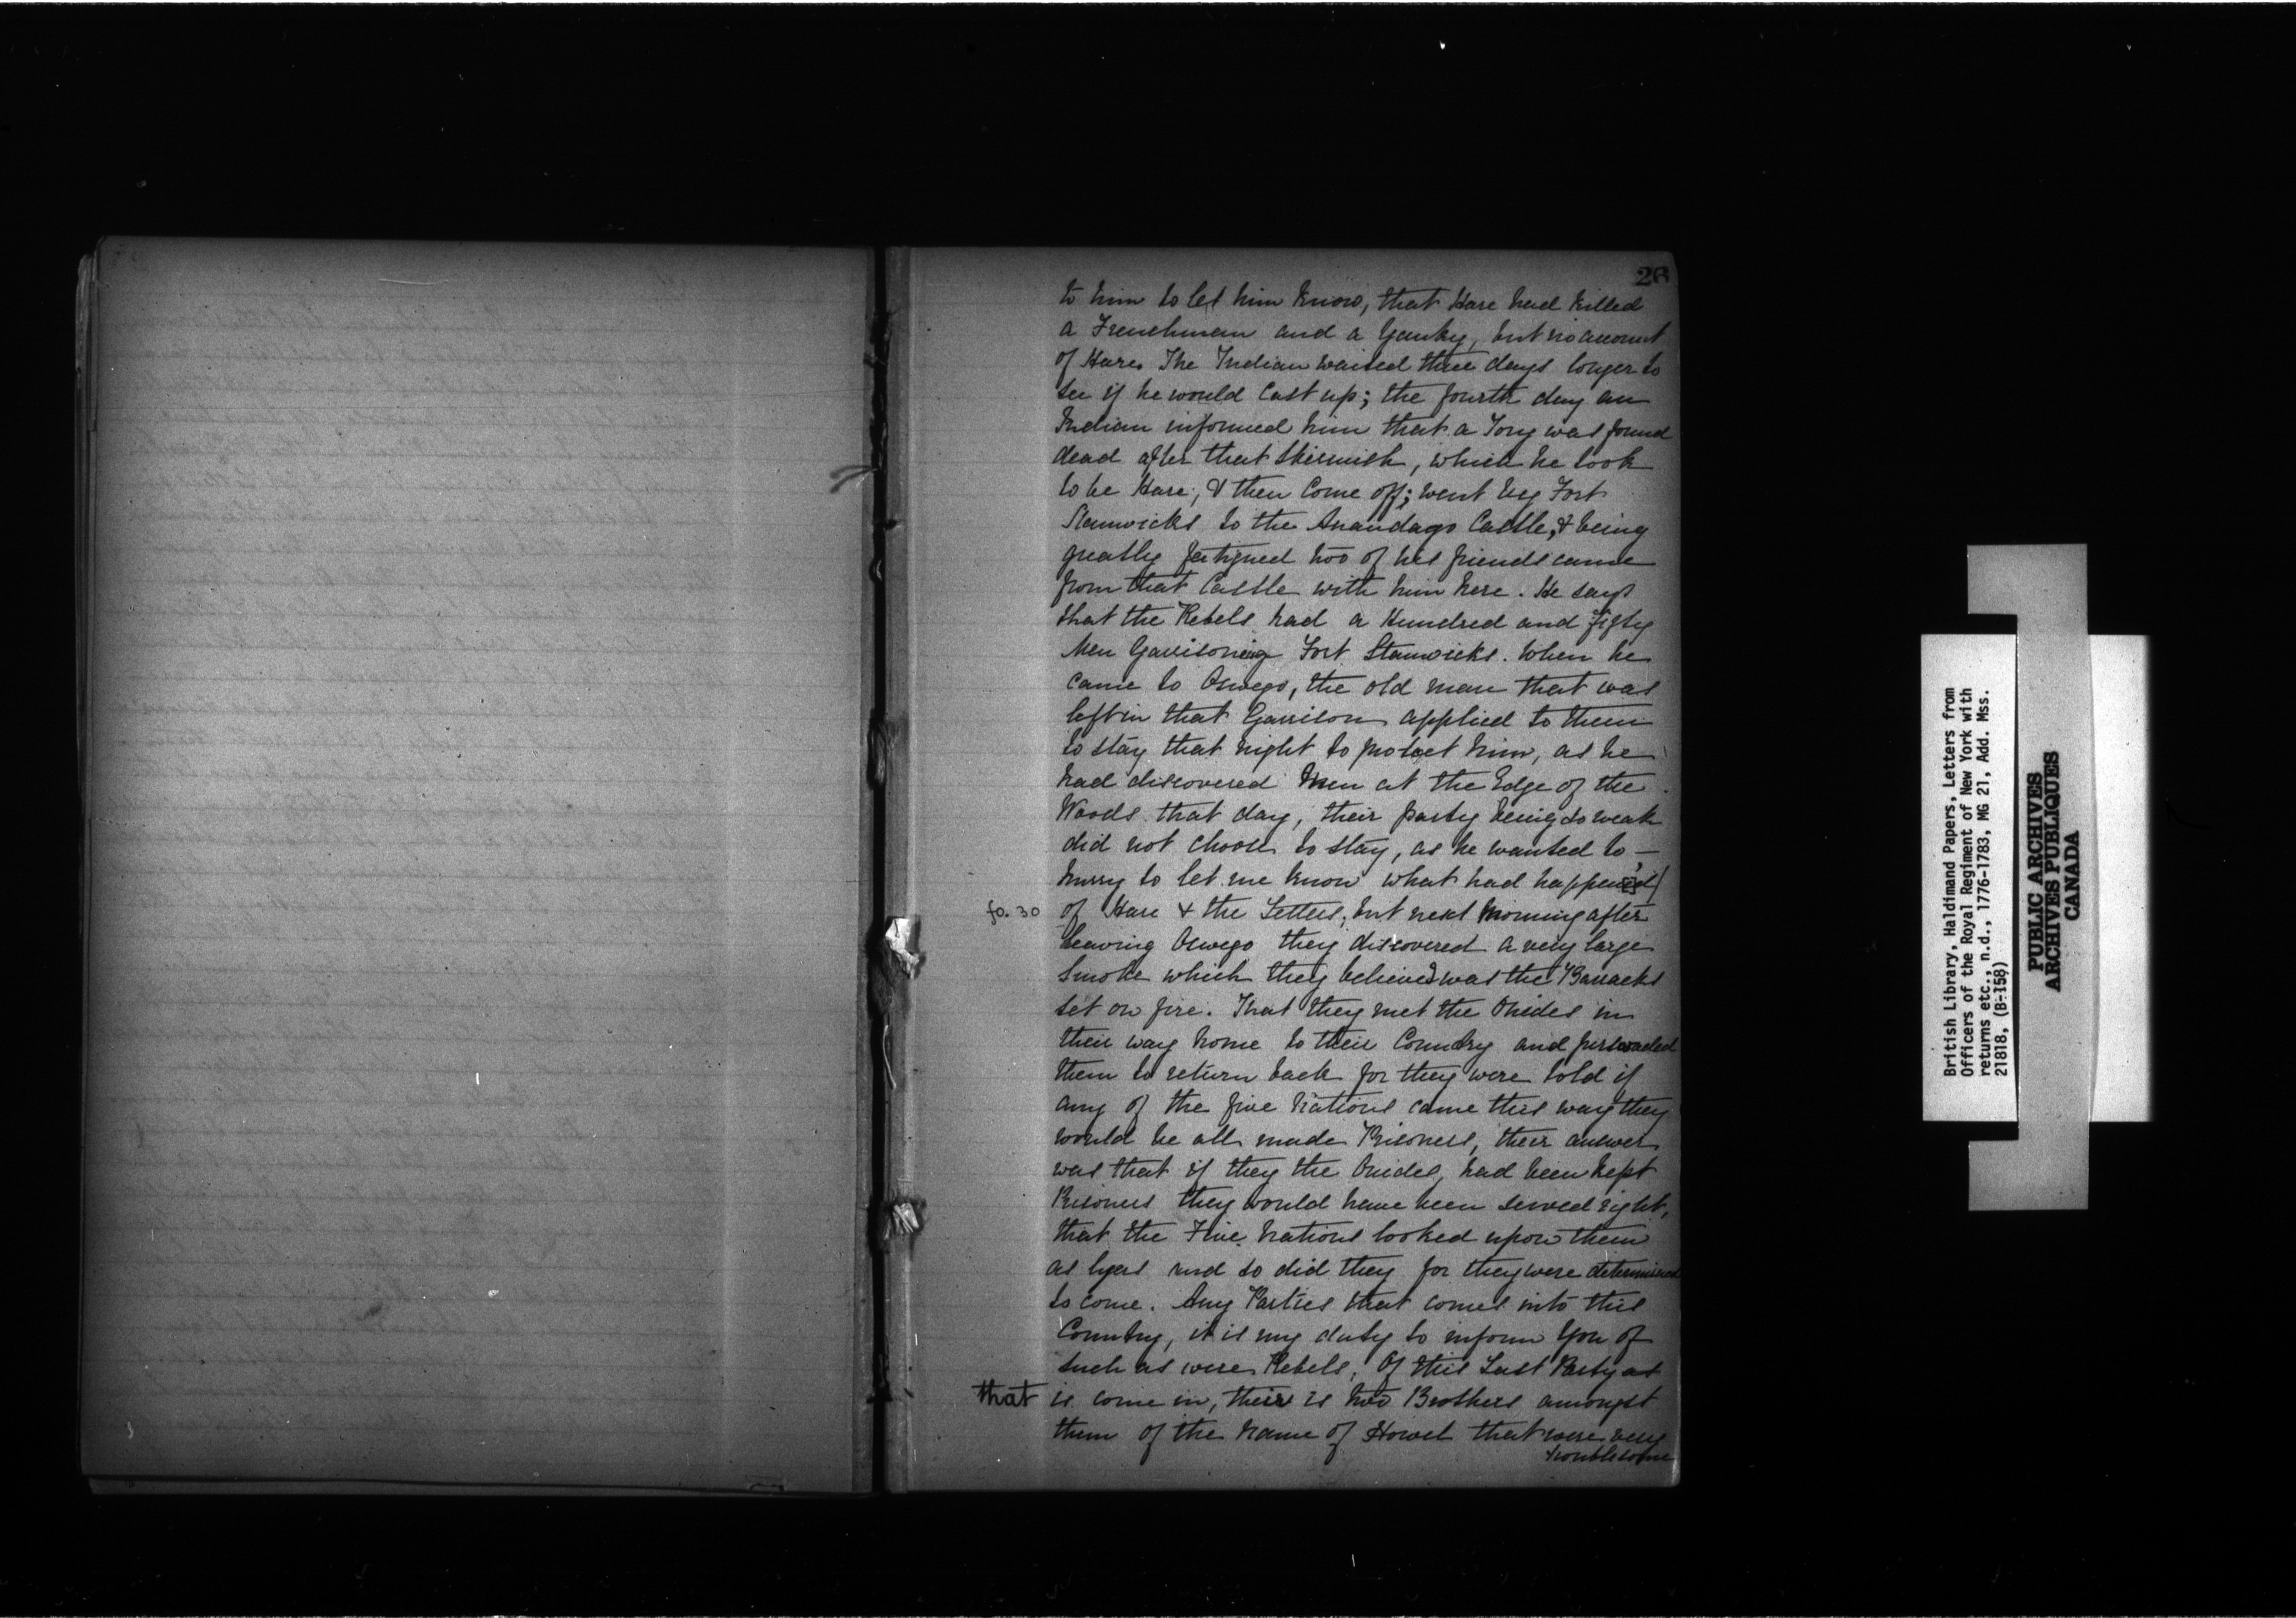 26
to him to let him know, that Hare had killed
a Frenchman and a Yanky, but no account
of Hare. The Indian waited three days longer to
see if he would Cast up; the fourth day an
Indian informed him that a Tory was found
dead after that Skirmish, which he took
to be Hare; & then Come off; went by Fort
Stanwicks to the Anandago Castle, & being
greatly fatigued two of his friends came
from that Castle with him here. He says
that the Rebels had a Hundred and Fifty
Men Garrisoning Fort Stanwicks. When he
came to Oswego, the old man that was
left in that Garrison applied to them
to stay that night to protect him, as he
had discovered Men at the Edge of the
Woods that day, their party being so weak
did not choose to stay, as he wanted to —
hurry to let me know what had happen'd/
fo. 30 of Hare & the Letters, but next Morning after
leaving Oswego they discovered a very large
Smoke which they believed was the Barracks
set on fire. That they met the Onides in
their way home to their Country and perswaded
them to return back for they were told if
any of the five Nations came this way they
would be all made Prisoners, their answer
was that if they the Onides, had been kept
Prisoners they would have been served right,
that the Five Nations looked upon them
as lyers and so did they for they were determined
to come. Any Parties that comes into this
Country, it is my duty to inform You of
such as were Rebels, Of this Last Party as
that is come in, their is two Brothers amongst
them of the name of Howel that were very
troublesome
British Library, Haldimand Papers, Letters from
Officers of the Royal Regiment of New York with
returns etc., n.d., 1776-1783, MG 21, Add. Mss.
21818, (B-158)
PUBLIC ARCHIVES
ARCHIVES PUBLIQUES
CANADA